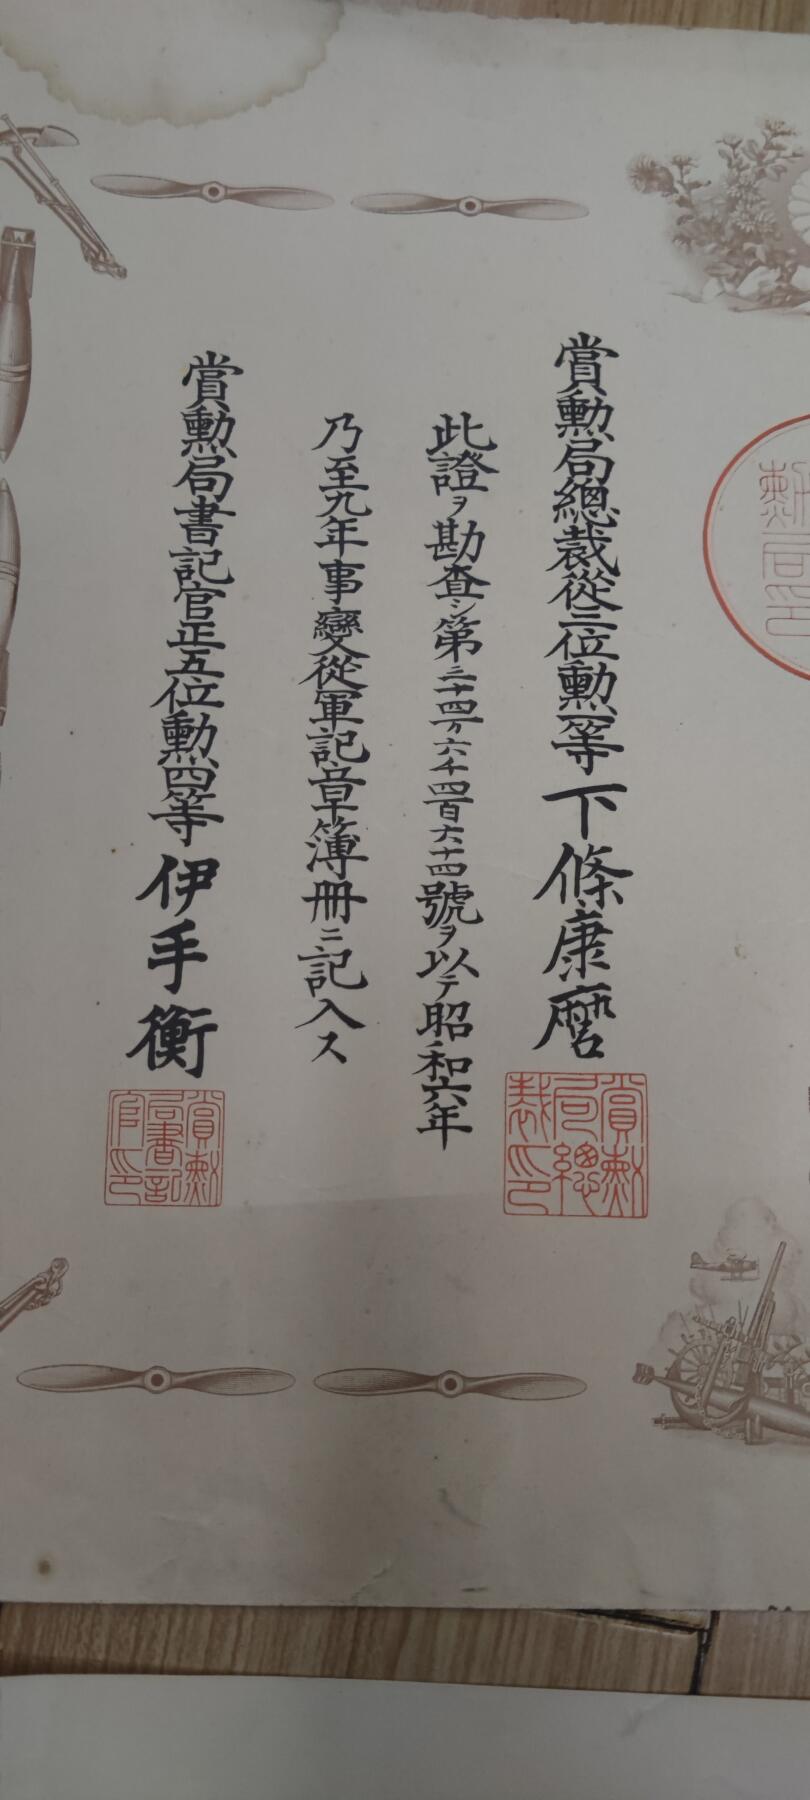 賞勲局總裁從三位勲一等下條康麿
此證ヲ勘査シ第二十四万六千四百六十四號ヲ以テ昭和六年
乃至九年事變從軍記章簿冊ニ記入ス
賞勲局書記官正五位勲四等伊手衡
賞勲局總裁印
賞勲局書記官印